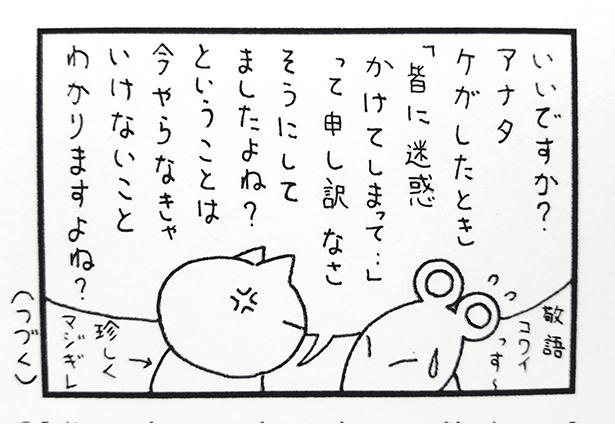 いいですか?
アナタ
ケガしたとき
「皆に迷惑
かけてしまって…」
って申し訳なさ
そうにして
ましたよね?
ということは
今やらなきゃ
いけないこと
わかりますよね?
敬語
コワイ
っす〜
珍しく
マジギレ
(つづく)